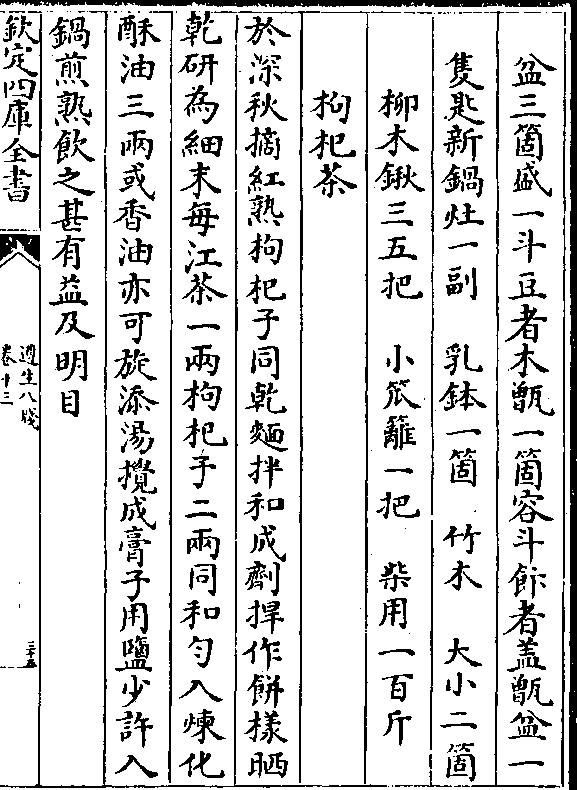 盆三箇盛一斗豆者木甑一箇容斗飵者盖甑盆一
隻匙新鍋灶一副　乳鉢一箇　竹木　大小二箇
柳木鍬三五把　小笊籬一把　柴用一百斤
枸杞茶
於深秋摘紅熟枸杞子同乾麵拌和成劑捍作餅様晒
乾研為細末毎江茶一兩枸杞子二兩同和勻入煉化
酥油三兩或香油亦可旋添湯攪成膏子用鹽少許入
鍋煎熟飲之甚有益及明目
欽定四庫全書
遵生八牋
卷十三
三十五